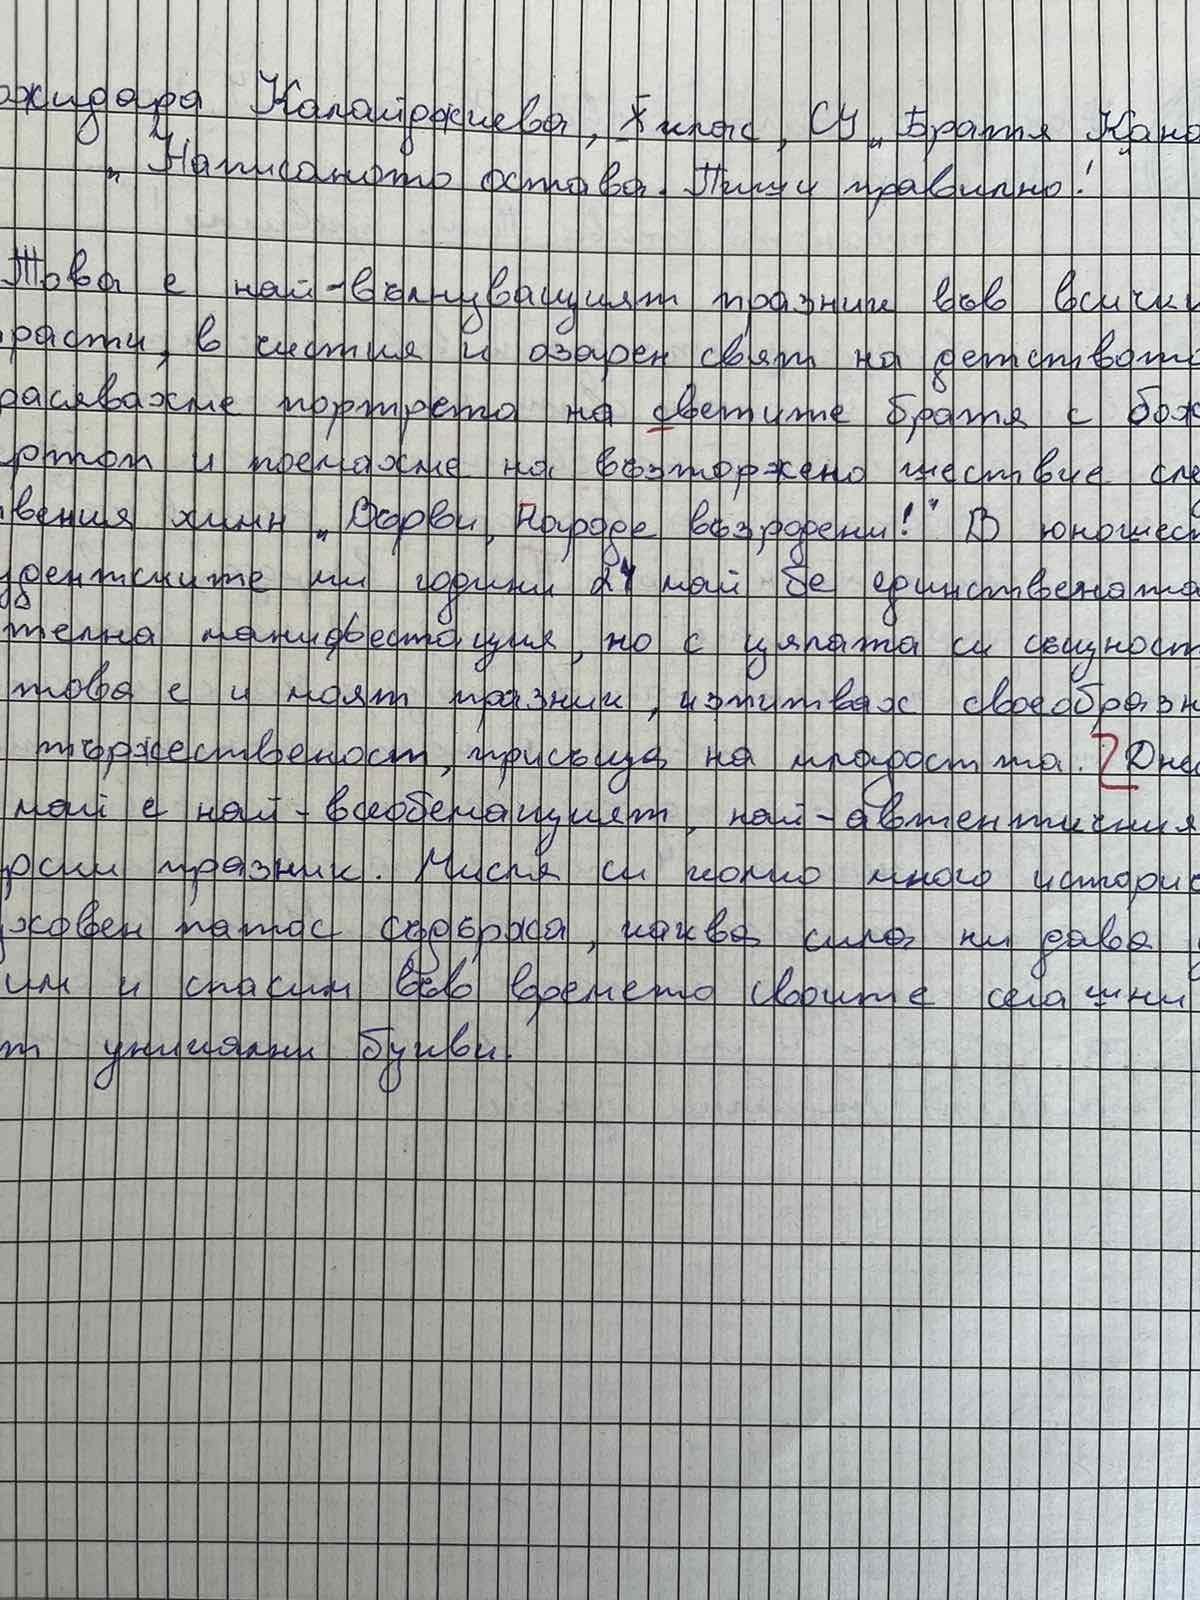 ожидара Калайджиева, X клас, СУ „Братя Кана
„Написаното остава. Пиши правилно!"
Това е най-вълнуващият празник във всички
расти, в чистия и озарен свят на детството
расявахме портрета на светите братя с бож
ртоп и поемахме на възторжено шествие сле
вения химн „Върви, Народе възродени!" В юношес
удентските ми години 24 май бе единствената
телна манифестация, но с цялата си същност
това е и моят празник, изпитвах своеобразн
тържественост, присъща на младостта. Дне
май е най-всеобемащият, най-автентичния
рски празник. Мисля си колко много истори
ховен патос съдържа, каква сила ни дава
им и спасим във времето своите сегашни
т уникални букви.